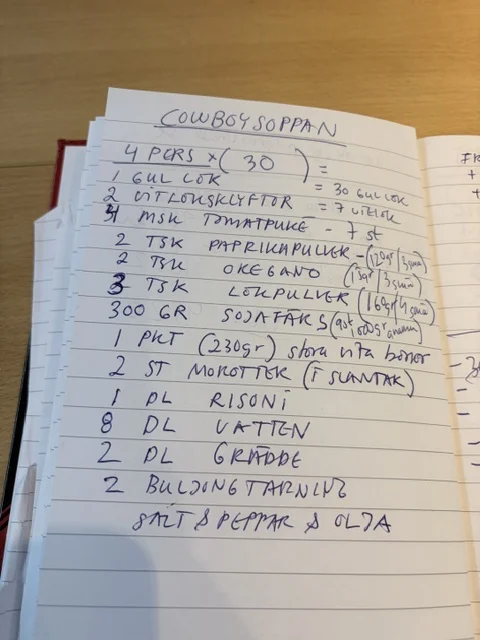 COWBOYSOPPAN
4 PERS × ( 30 ) =
1 GUL LÖK = 30 GUL LÖK
2 VITLÖKSKLYFTOR = 7 VITLÖK
4 MSK TOMATPURÉ - 7 st
2 TSK PAPRIKAPULVER - (120gr/3
2 TSK OREGANO (15gr/3
3 TSK LÖKPULVER (160gr/4
300 GR SOJAFÄRS
1 PKT (230gr) stora vita bönor
2 ST MORÖTTER (I SLANTAR)
1 DL RISONI
8 DL VATTEN
2 DL GRÄDDE
2 BULJONGTÄRNING
SALT & PEPPAR & OLJA